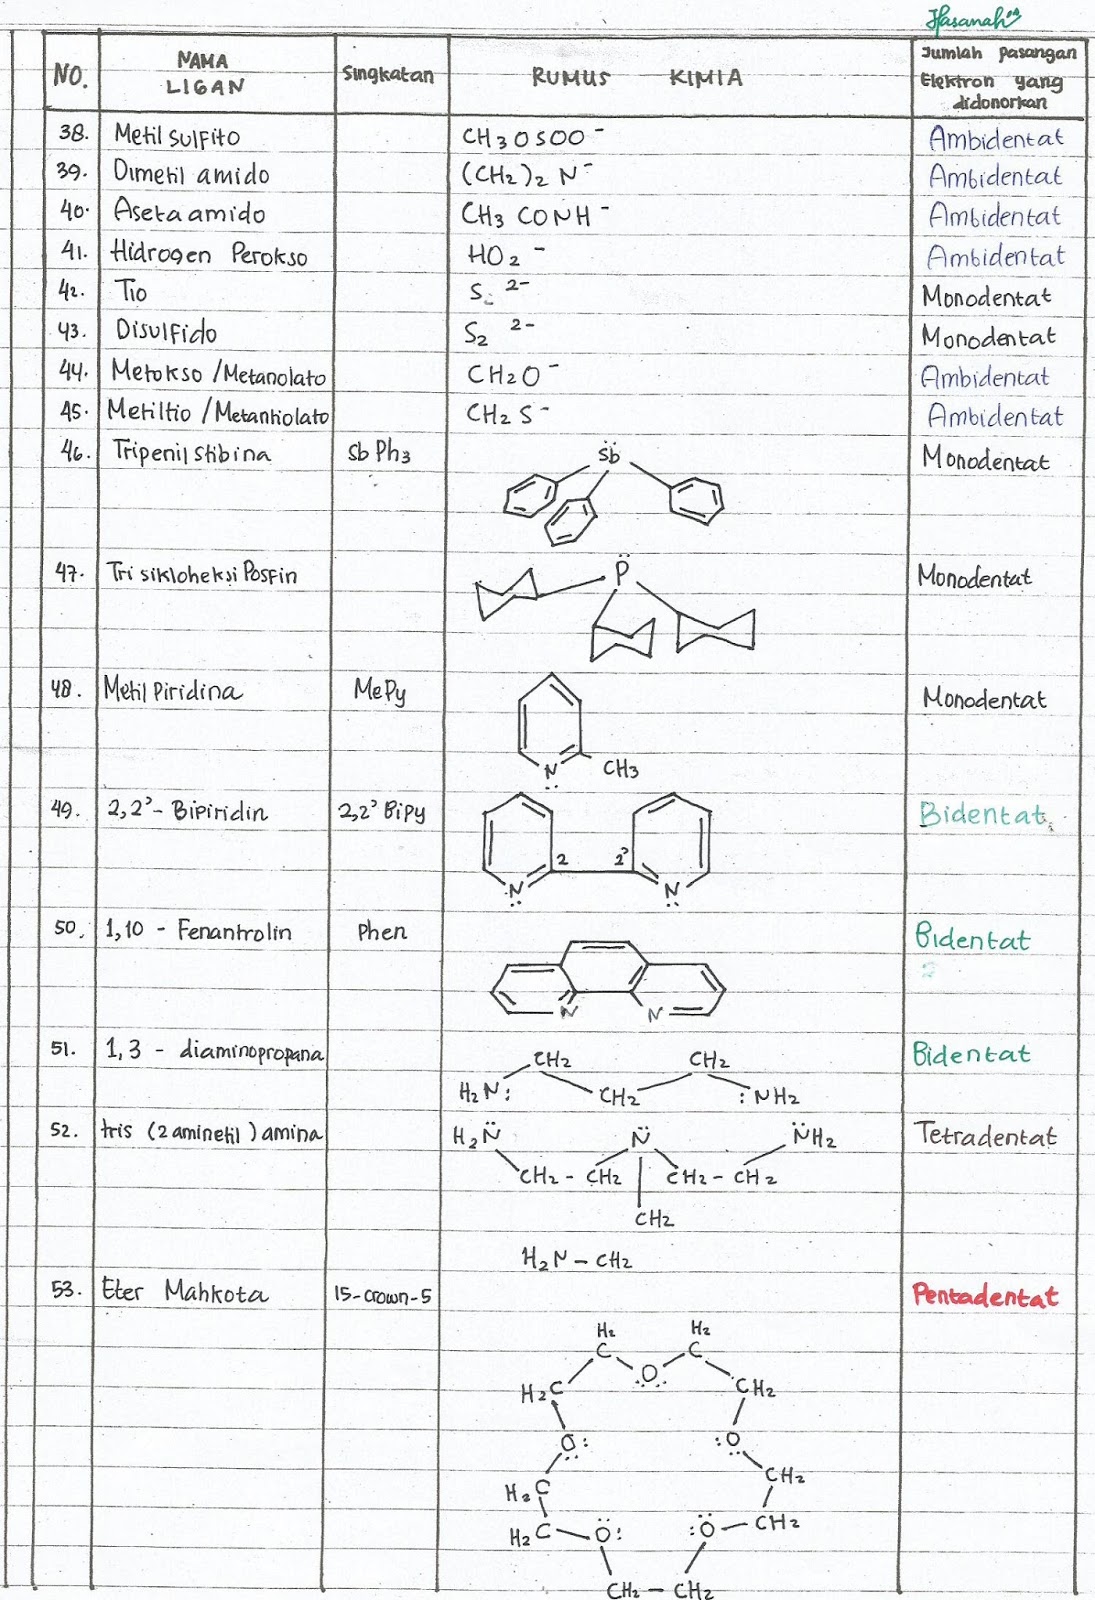 Hasanah
NO. NAMA LIGAN Singkatan RUMUS KIMIA Jumlah pasangan Elektron yang didonorkan
38. Metil sulfito CH3OSOO⁻ Ambidentat
39. Dimetil amido (CH2)2 N⁻ Ambidentat
40. Aseta amido CH3 CONH⁻ Ambidentat
41. Hidrogen Perokso HO2⁻ Ambidentat
42. Tio S 2- Monodentat
43. Disulfido S2 2- Monodentat
44. Metokso /Metanolato CH2O⁻ Ambidentat
45. Metiltio /Metantiolato CH2S⁻ Ambidentat
46. Tripenil stibina Sb Ph3 Sb Monodentat
47. Tri sikloheksi Posfin P Monodentat
48. Metil Piridina MePy Monodentat
N CH3
49. 2,2' - Bipiridin 2,2' Bipy Bidentat
2 2'
N N
50. 1,10 - Fenantrolin Phen Bidentat
2
N N
51. 1,3 - diaminopropana CH2 CH2 Bidentat
H2N: CH2 :NH2
52. tris (2 aminetil) amina H2N N NH2 Tetradentat
CH2 - CH2 CH2 - CH2
CH2
H2N - CH2
53. Eter Mahkota 15-crown-5 Pentadentat
H2 H2
C O C
H2C CH2
O: :O
H2C CH2
H2C O: :O CH2
CH2 - CH2